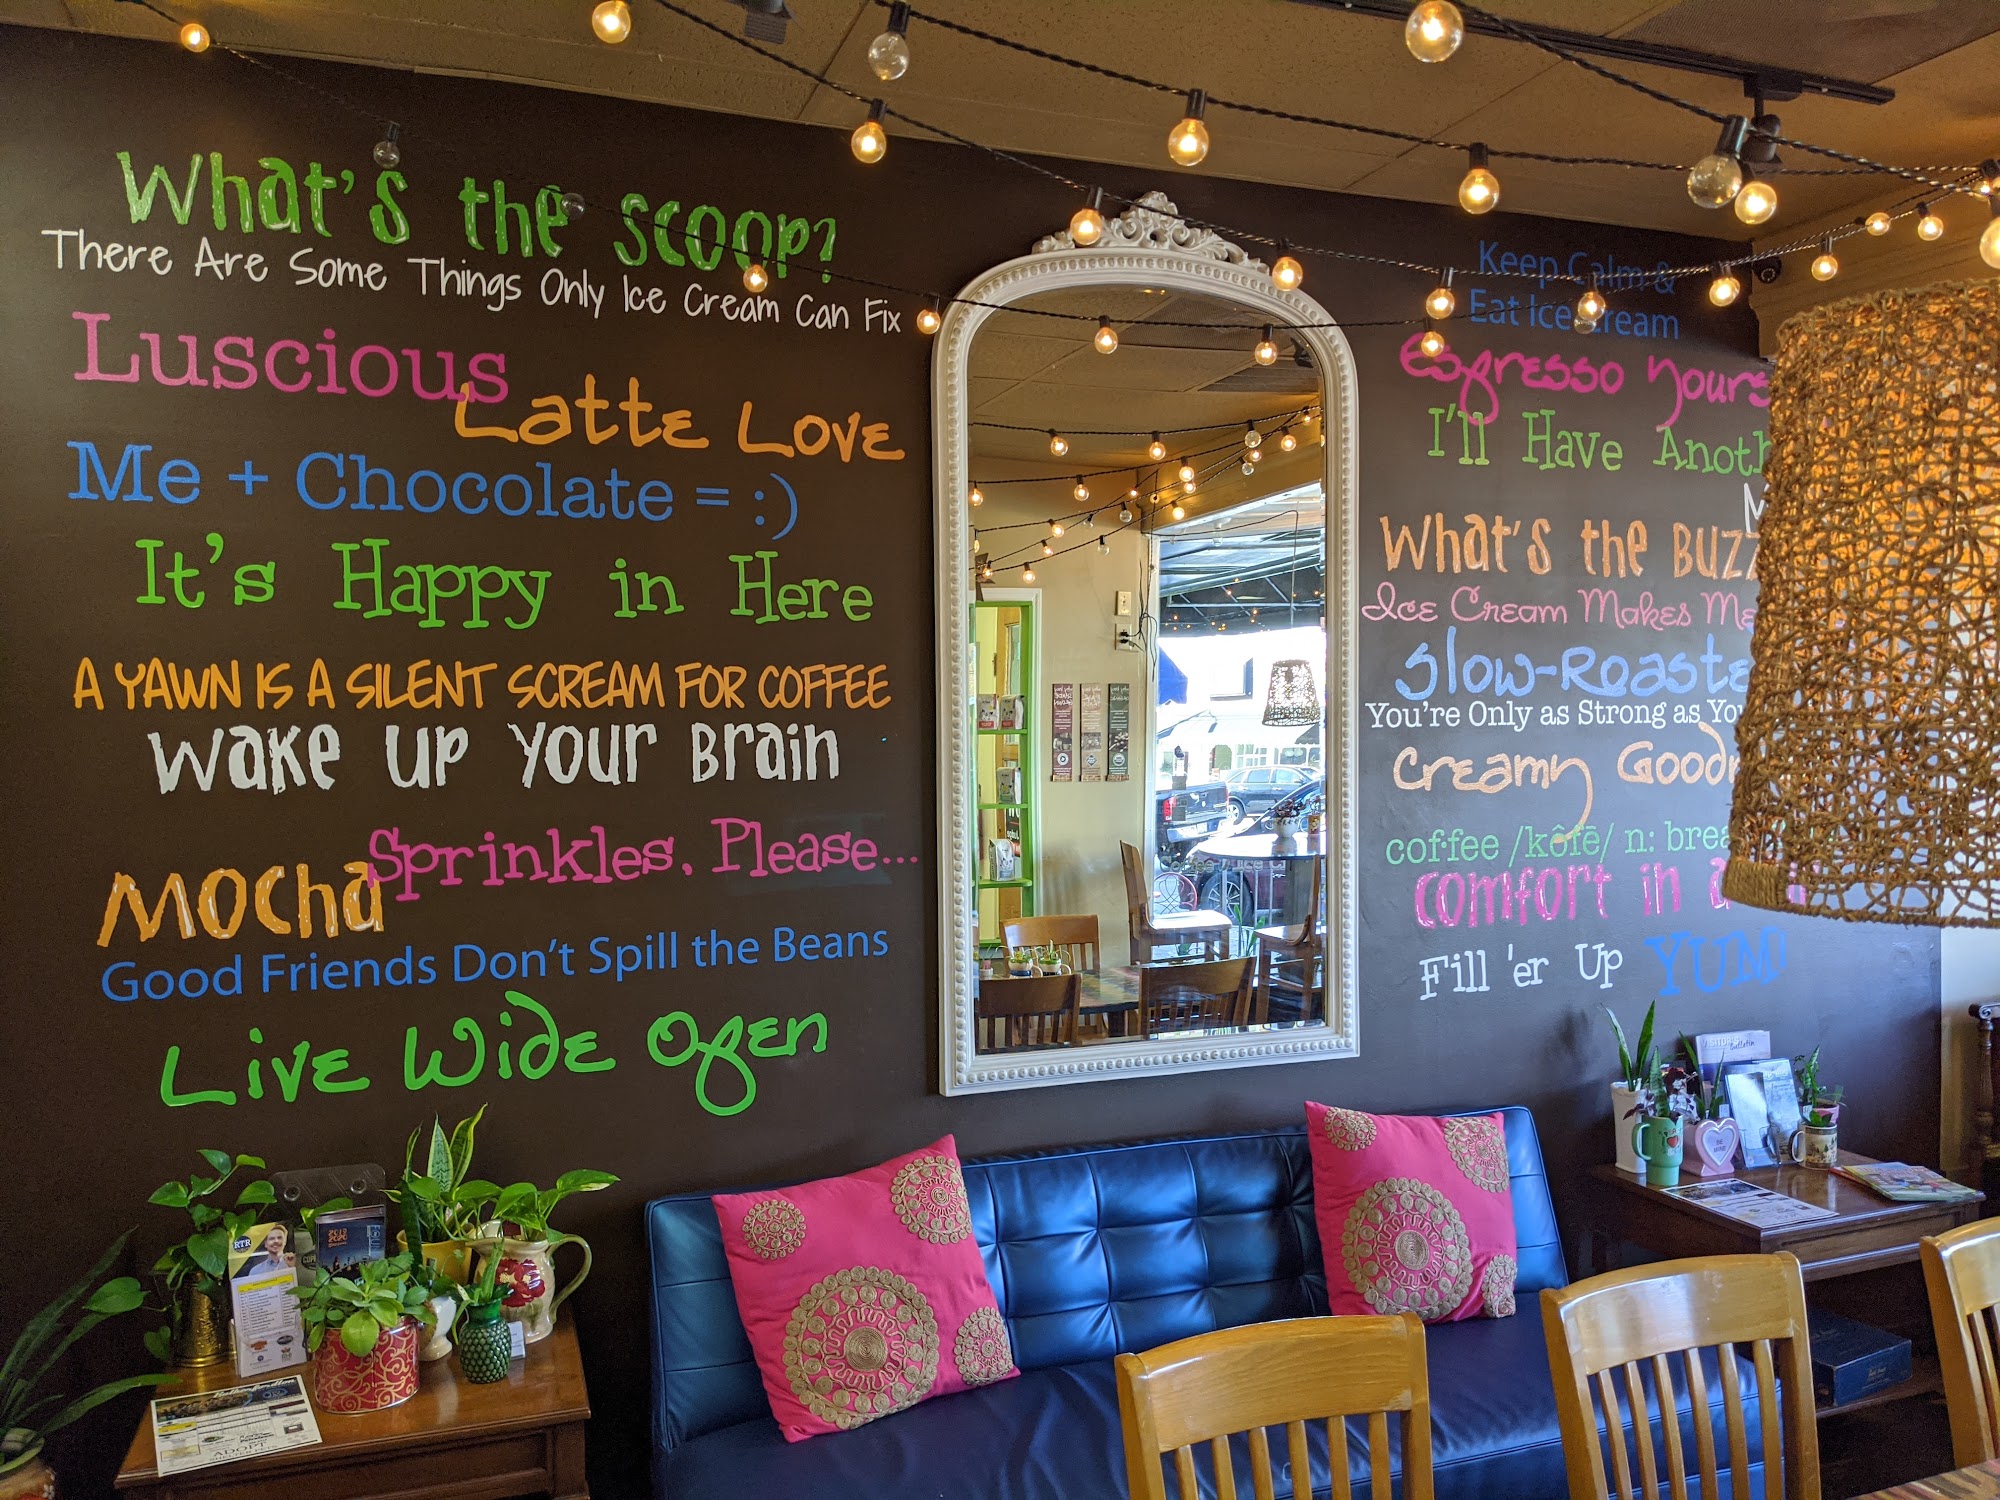 What's the Scoop?
There Are Some Things Only Ice Cream Can Fix
Luscious
Latte Love
Me + Chocolate = :)
It's Happy in Here
A YAWN IS A SILENT SCREAM FOR COFFEE
Wake up Your Brain
Sprinkles, Please...
Mocha
Good Friends Don't Spill the Beans
Live Wide Open
Keep Calm &
Eat Ice Cream
Espresso Yours
I'll Have Anoth
M
What's the Buzz
Ice Cream Makes Me
Slow-Roaste
You're Only as Strong as You
Creamy Goodn
cof·fee /kôfē/ n: brea
Comfort in a
Fill 'er Up
YUM!
RTR
VISITOR'S
bulletin
ADOPT